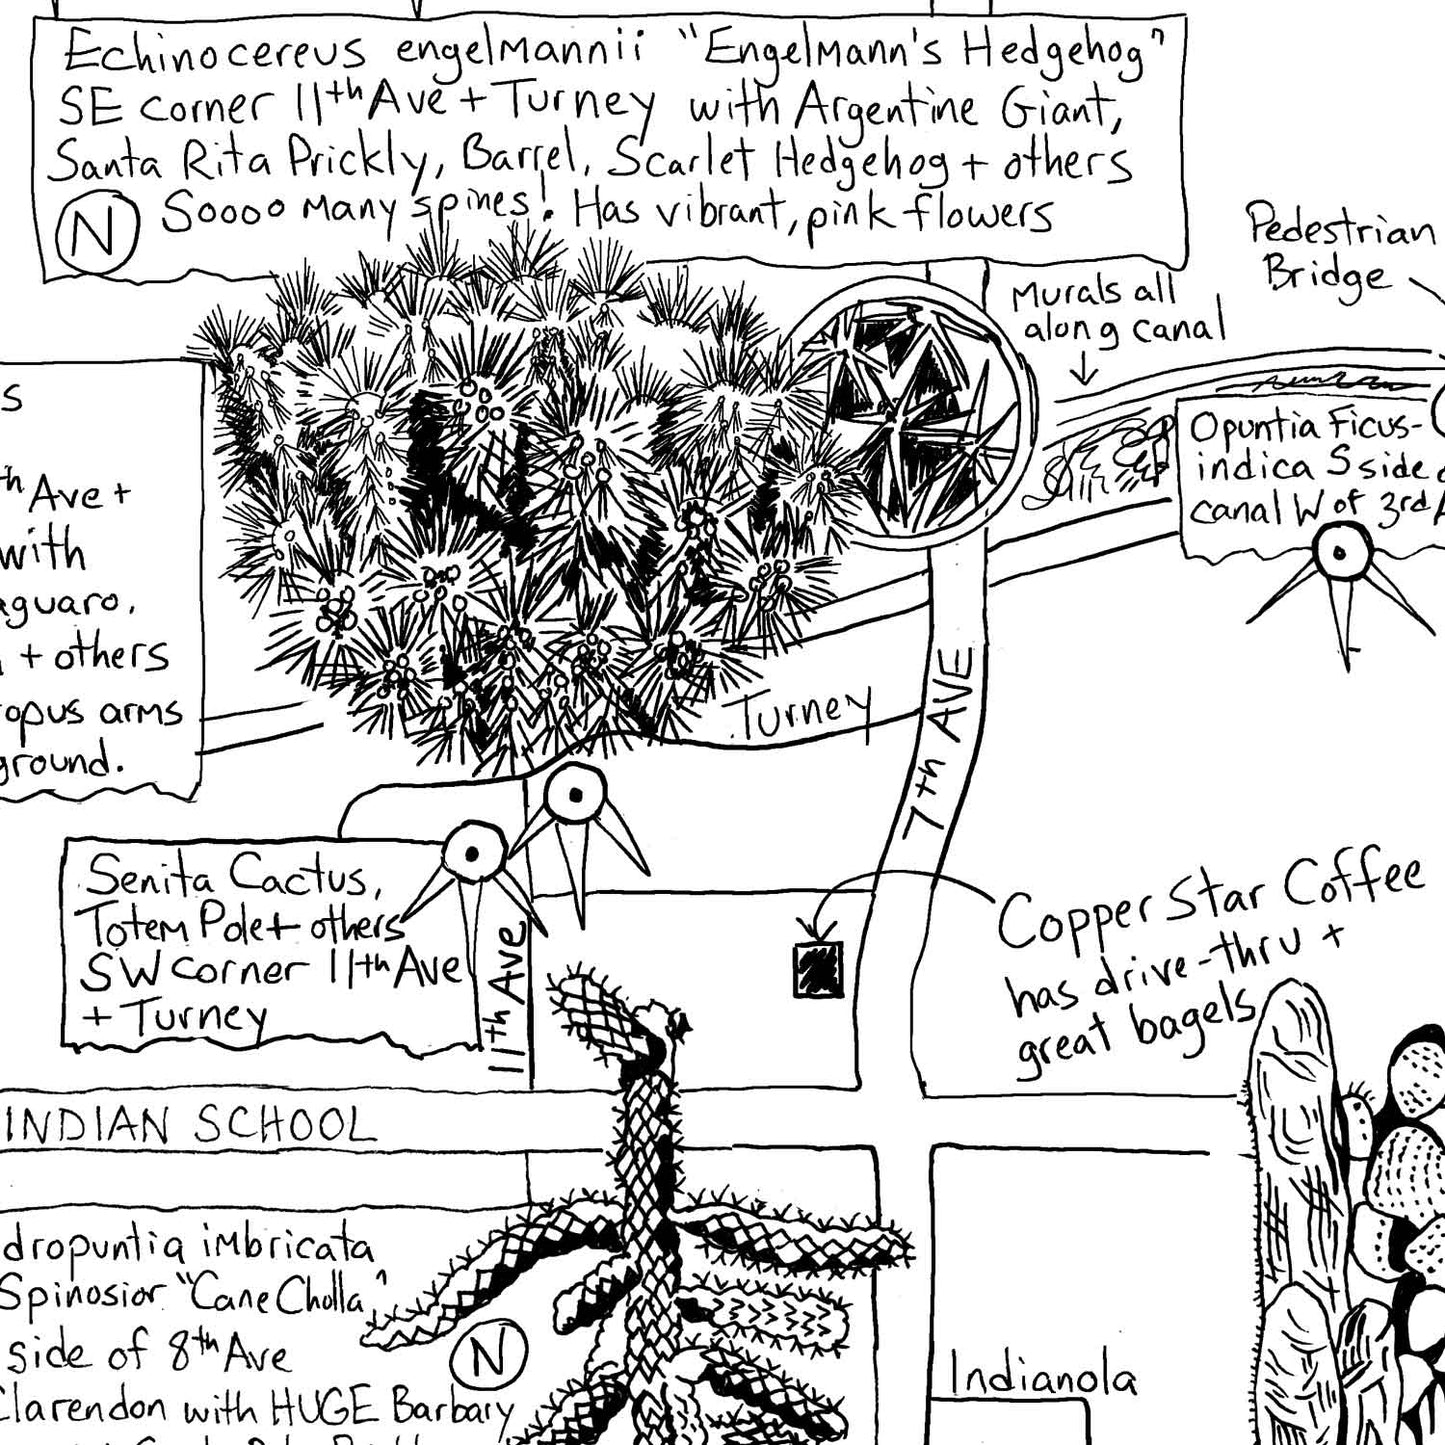 Echinocereus engelmannii "Engelmann's Hedgehog"
SE corner 11th Ave + Turney with Argentine Giant,
Santa Rita Prickly, Barrel, Scarlet Hedgehog + others
N Soooo many spines! Has vibrant, pink flowers
Pedestrian
Bridge
Murals all
along canal
s
th Ave +
with
aguaro,
+ others
opus arms
ground.
Opuntia Ficus-
indica S side
canal W of 3rd A
Turney
7th AVE
Senita Cactus,
Totem Pole + others
SW corner 11th Ave
+ Turney
11th Ave
Copper Star Coffee
has drive-thru +
great bagels
INDIAN SCHOOL
dropuntia imbricata
Spinosior "Cane Cholla"
side of 8th Ave
Clarendon with HUGE Barbary
N
Indianola